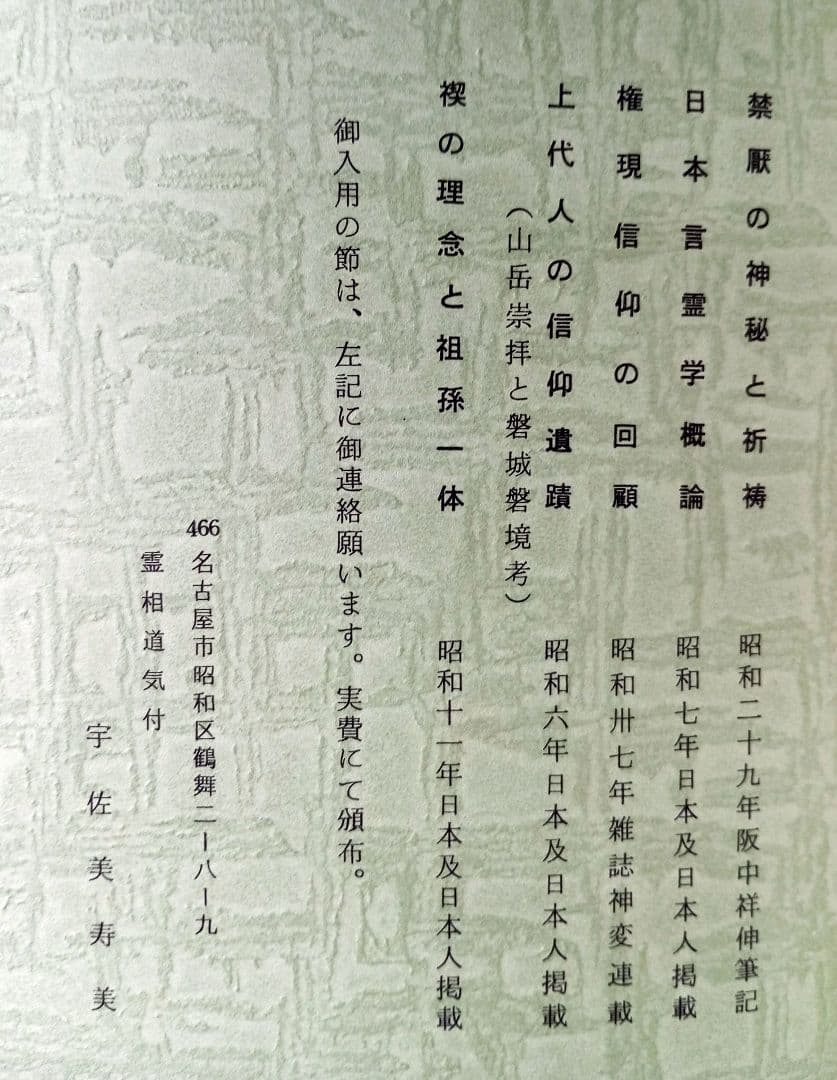 禁厭の神秘と祈祷　昭和二十九年阪中祥伸筆記
日本言霊学概論　昭和七年日本及日本人掲載
権現信仰の回顧　昭和卅七年雑誌神変連載
上代人の信仰遺蹟　昭和六年日本及日本人掲載
（山岳崇拝と磐城磐境考）
禊の理念と祖孫一体　昭和十一年日本及日本人掲載
御入用の節は、左記に御連絡願います。実費にて頒布。
466 名古屋市昭和区鶴舞二ー八ー九
霊相道気付
宇佐美寿美